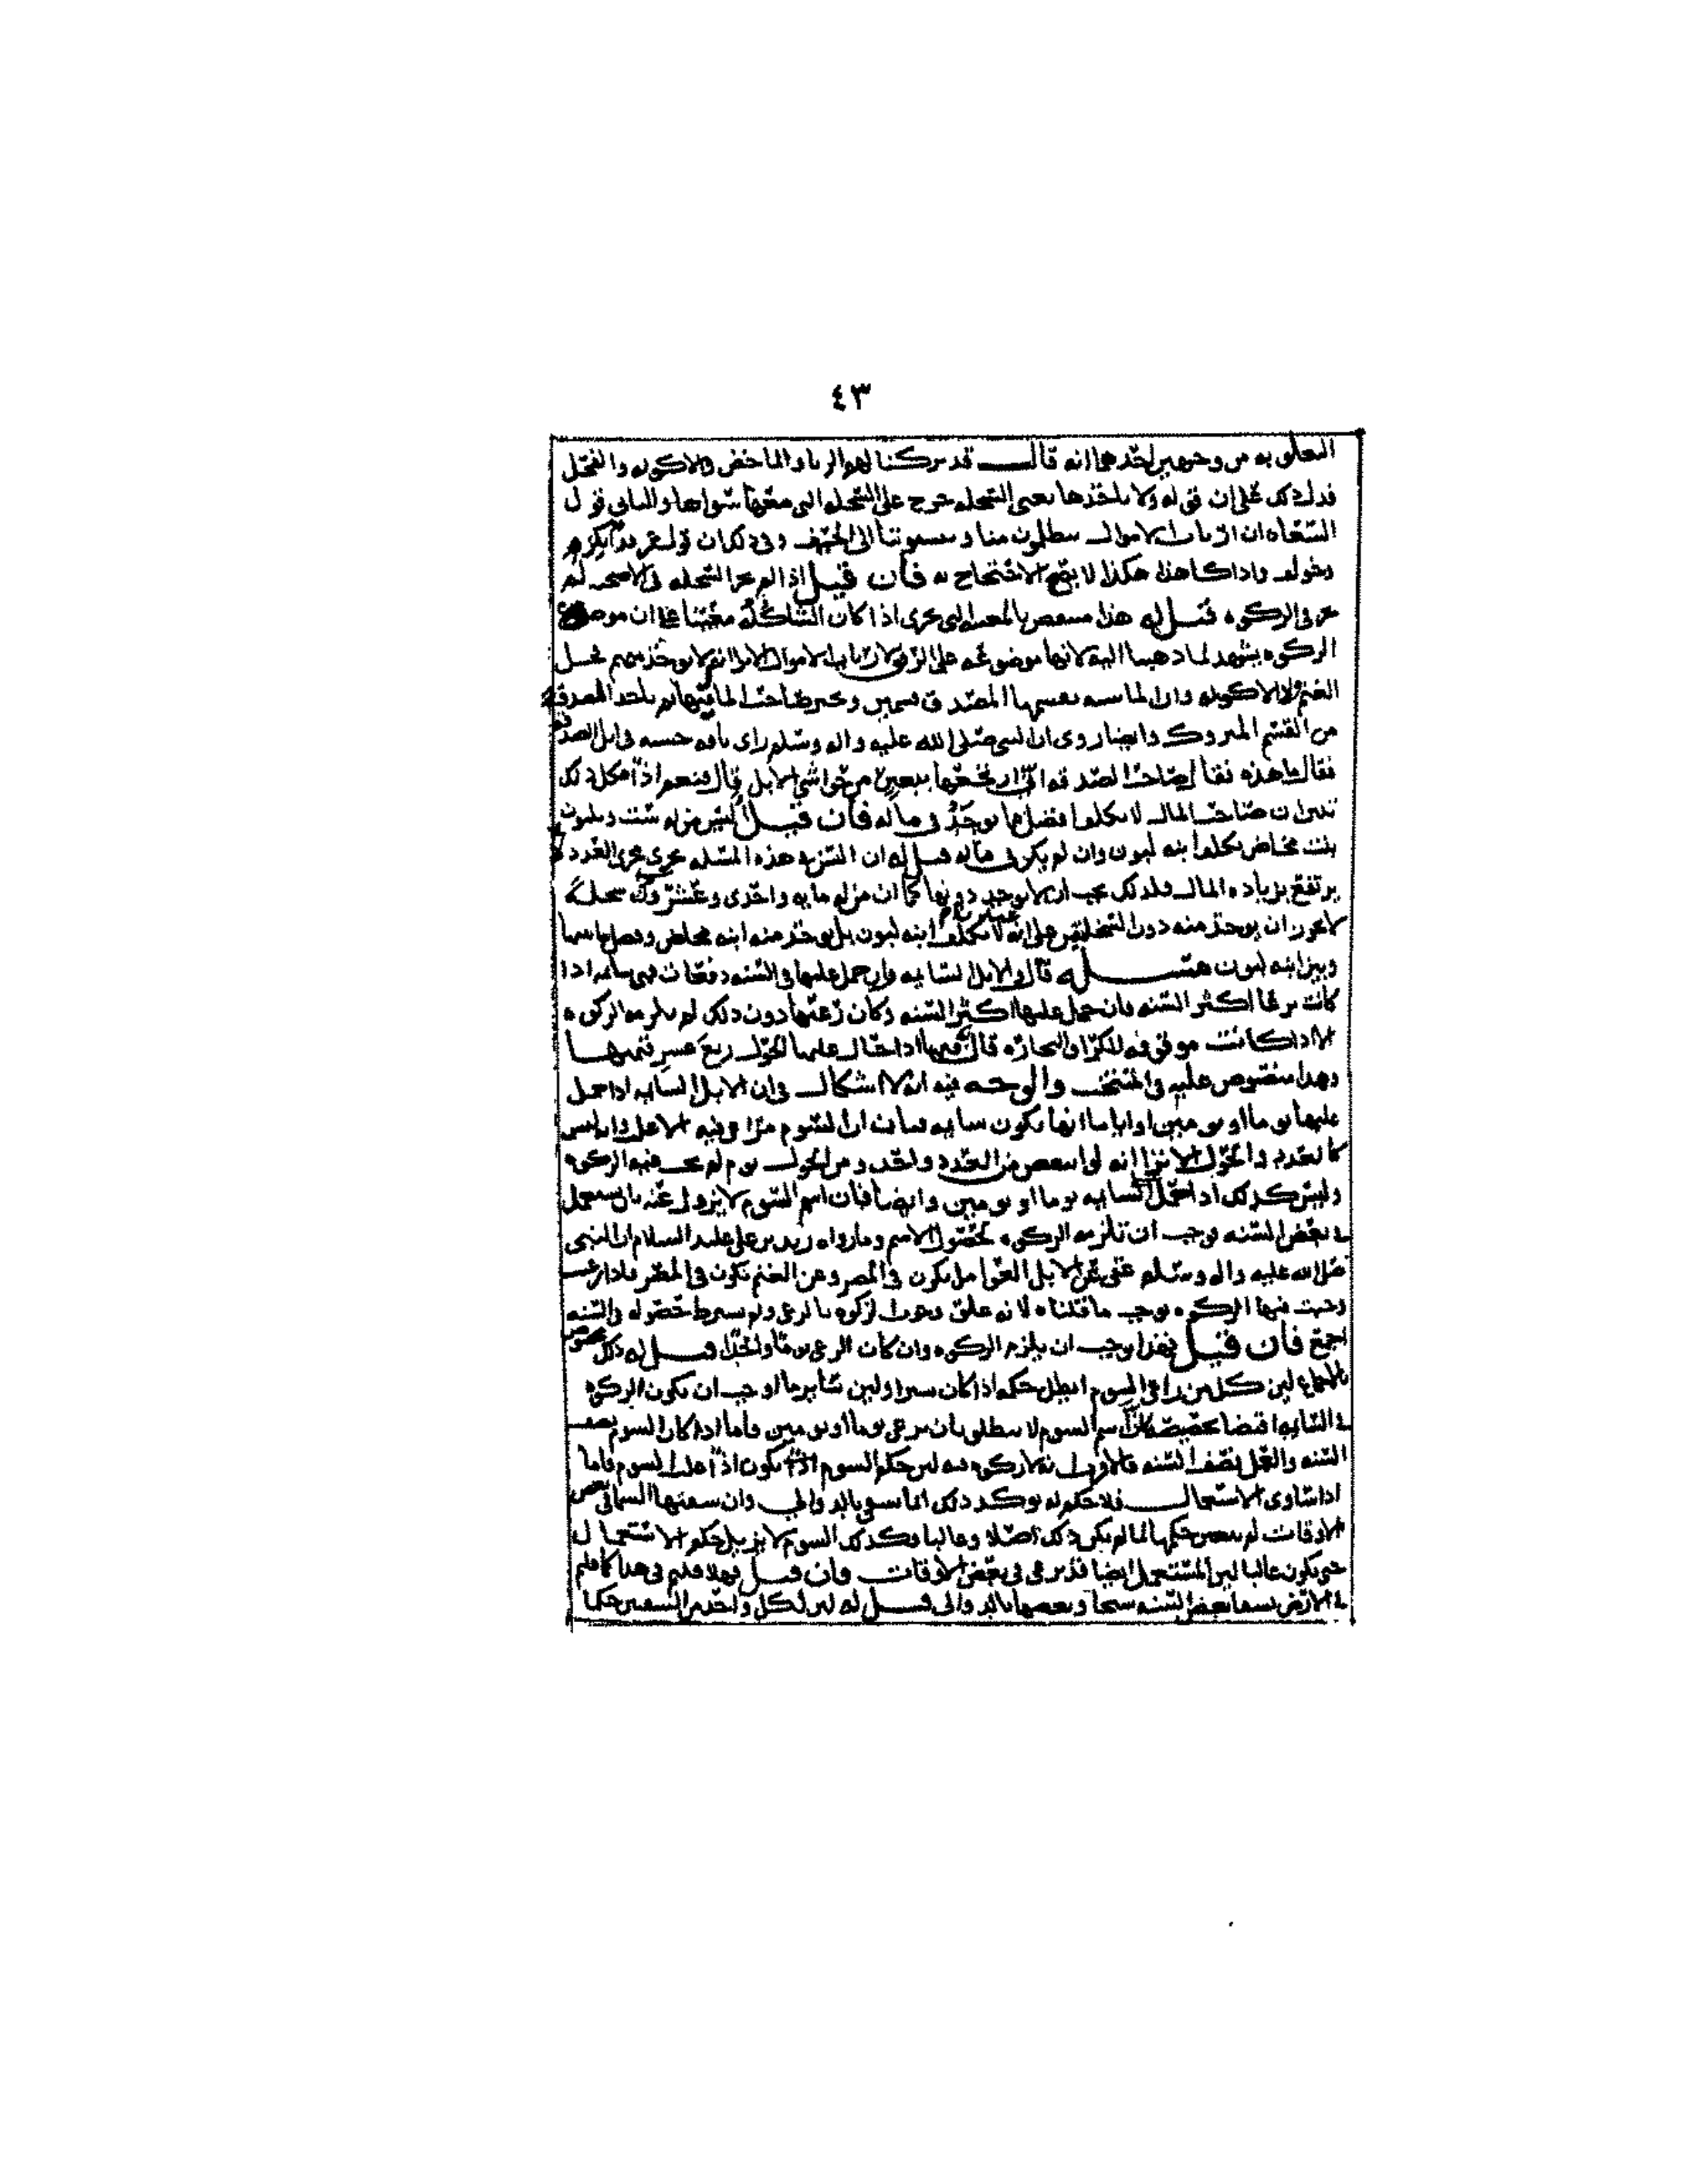 ٤٣
التعلق به من وجهين احدهما انه قال قد تركنا لهم الربا والماخض والاكوله والفحل
فدل ذلك على ان قوله ولا ياخذها يعنى السخله خرج على السخله التى معها سواها والثانى قول
السعاه ان ارباب الاموال يتظلمون منا و الى الحيف وفى ذلك ان قول عمر
واذا كان هذا هكذا لا يصح الاحتجاج به فان قيل اذا لم تجز السخله فى الاضحيه لم
تجز فى الزكوه قيل له هذا ينتقض بالمعيبه التى تجزى اذا كان الشا كلها معيبا على ان موضوع
الزكوه يشهد لما ذهبنا اليه لانها موضوعه على الرفق لارباب الاموال الا ترا انهم لا يوخذ منهم فحل
الغنم ولا الاكوله وان الماشيه يقسمها المصدق قسمين ويخير صاحب المال فيها ثم ياخذ المصدق
من القسم المتروك وايضا روى ان النبى صلى الله عليه واله وسلم راى ناقه حسنه فى ابل الصدقه
فقال ما هذه فقال صاحب الصدقه انى ارتجعتها ببعيرين من حواشى الابل قال فنعم اذا فكل ذلك
يبين ان صاحب المال لا يكلف افضل مما يوجد فى ماله فان قيل اليس من له ست وثلثون
بنت مخاض يكلف ابنه لبون وان لم يكن فى ماله قيل له ان السن فى هذه المسله يجرى مجرى العدد
يرتفع بزياده المال فلذلك يجب ان لا يوجد دونها كما ان من له مايه واحدى وعشرون سخله
لا يجوز ان يوخذ منه دون السخلتين على انه لا يكلف ابنه لبون بل يوخذ منه ابنه مخاض وفضل ما بينها
وبين ابنه لبون مسئله قال والابل السايمه وان حمل عليها فى السنه دفعات فهى سايمه اذا
كانت ترعا اكثر السنه فان حمل عليها اكثر السنه وكان رعيها دون ذلك لم تلزم الزكوه
الا اذا كانت موقوفه للكرا والتجاره قال ففيها اذا حال عليها الحول ربع عشر قيمتها
وهذا منصوص عليه فى المنتخب والوجه فيه انه لا اشكال فى ان الابل السايمه اذا حمل
عليها يوما او يومين او اياما انها تكون سايمه فبان ان السوم مراعى فيه الاغلب وانه ليس
كالعدد والحول الا ترا انه لو انتقص من العدد واحد ومن الحول يوم لم تجب فيه الزكوه
وليس كذلك اذا حمل السايمه يوما او يومين وايضا فان اسم السوم لا يزول عنه بان يستعمل
فى بعض السنه فوجب ان تلزمه الزكوه لحصول الاسم وما رواه زيد بن على عليه السلام ان النبى
صلى الله عليه واله وسلم عفى عن الابل العوامل تكون فى المصر وعن الغنم تكون فى المصر فاذا رعت
وجبت فيها الزكوه يوجب ما قلناه لانه علق وجوب الزكوه بالرعى ولم يشترط حصوله فى السنه
اجمع فان قيل فهذا يوجب ان يلزم الزكوه وان كان الرعى يوما واحدا قيل له ذلك مخصوص
بالاجماع لان كل من راعى السوم ابطل حكمه اذا كان يسيرا ولان سايرها اوجب ان تكون الزكوه
فى السايمه اقتضا اسم السوم لا ينطلق بان ترعى يوما او يومين واما اذا كان السوم نصف
السنه والعمل نصف السنه فالاقرب انه لا زكوه فيه لان حكم السوم انما يكون اذا غلب السوم فاما
اذا ساوى الاستعمال فلا حكم له يوكد ذلك ان ما سقى بالدوالى وان سقتها السما فى بعض
الاوقات لم يتغير حكمها لما لم يكن ذلك اصلا وغالبا وكذلك السوم لا يزيل حكم الاستعمال
حتى يكون غالبا لان المستعمل ايضا قد يرعى فى بعض الاوقات فان قيل فهلا قلتم فى هذا كما قلتم
فى الارض تسقا بعض السنه سيحا وبعضها بالدوالى قيل له لان لكل واحد من السقيين حكما